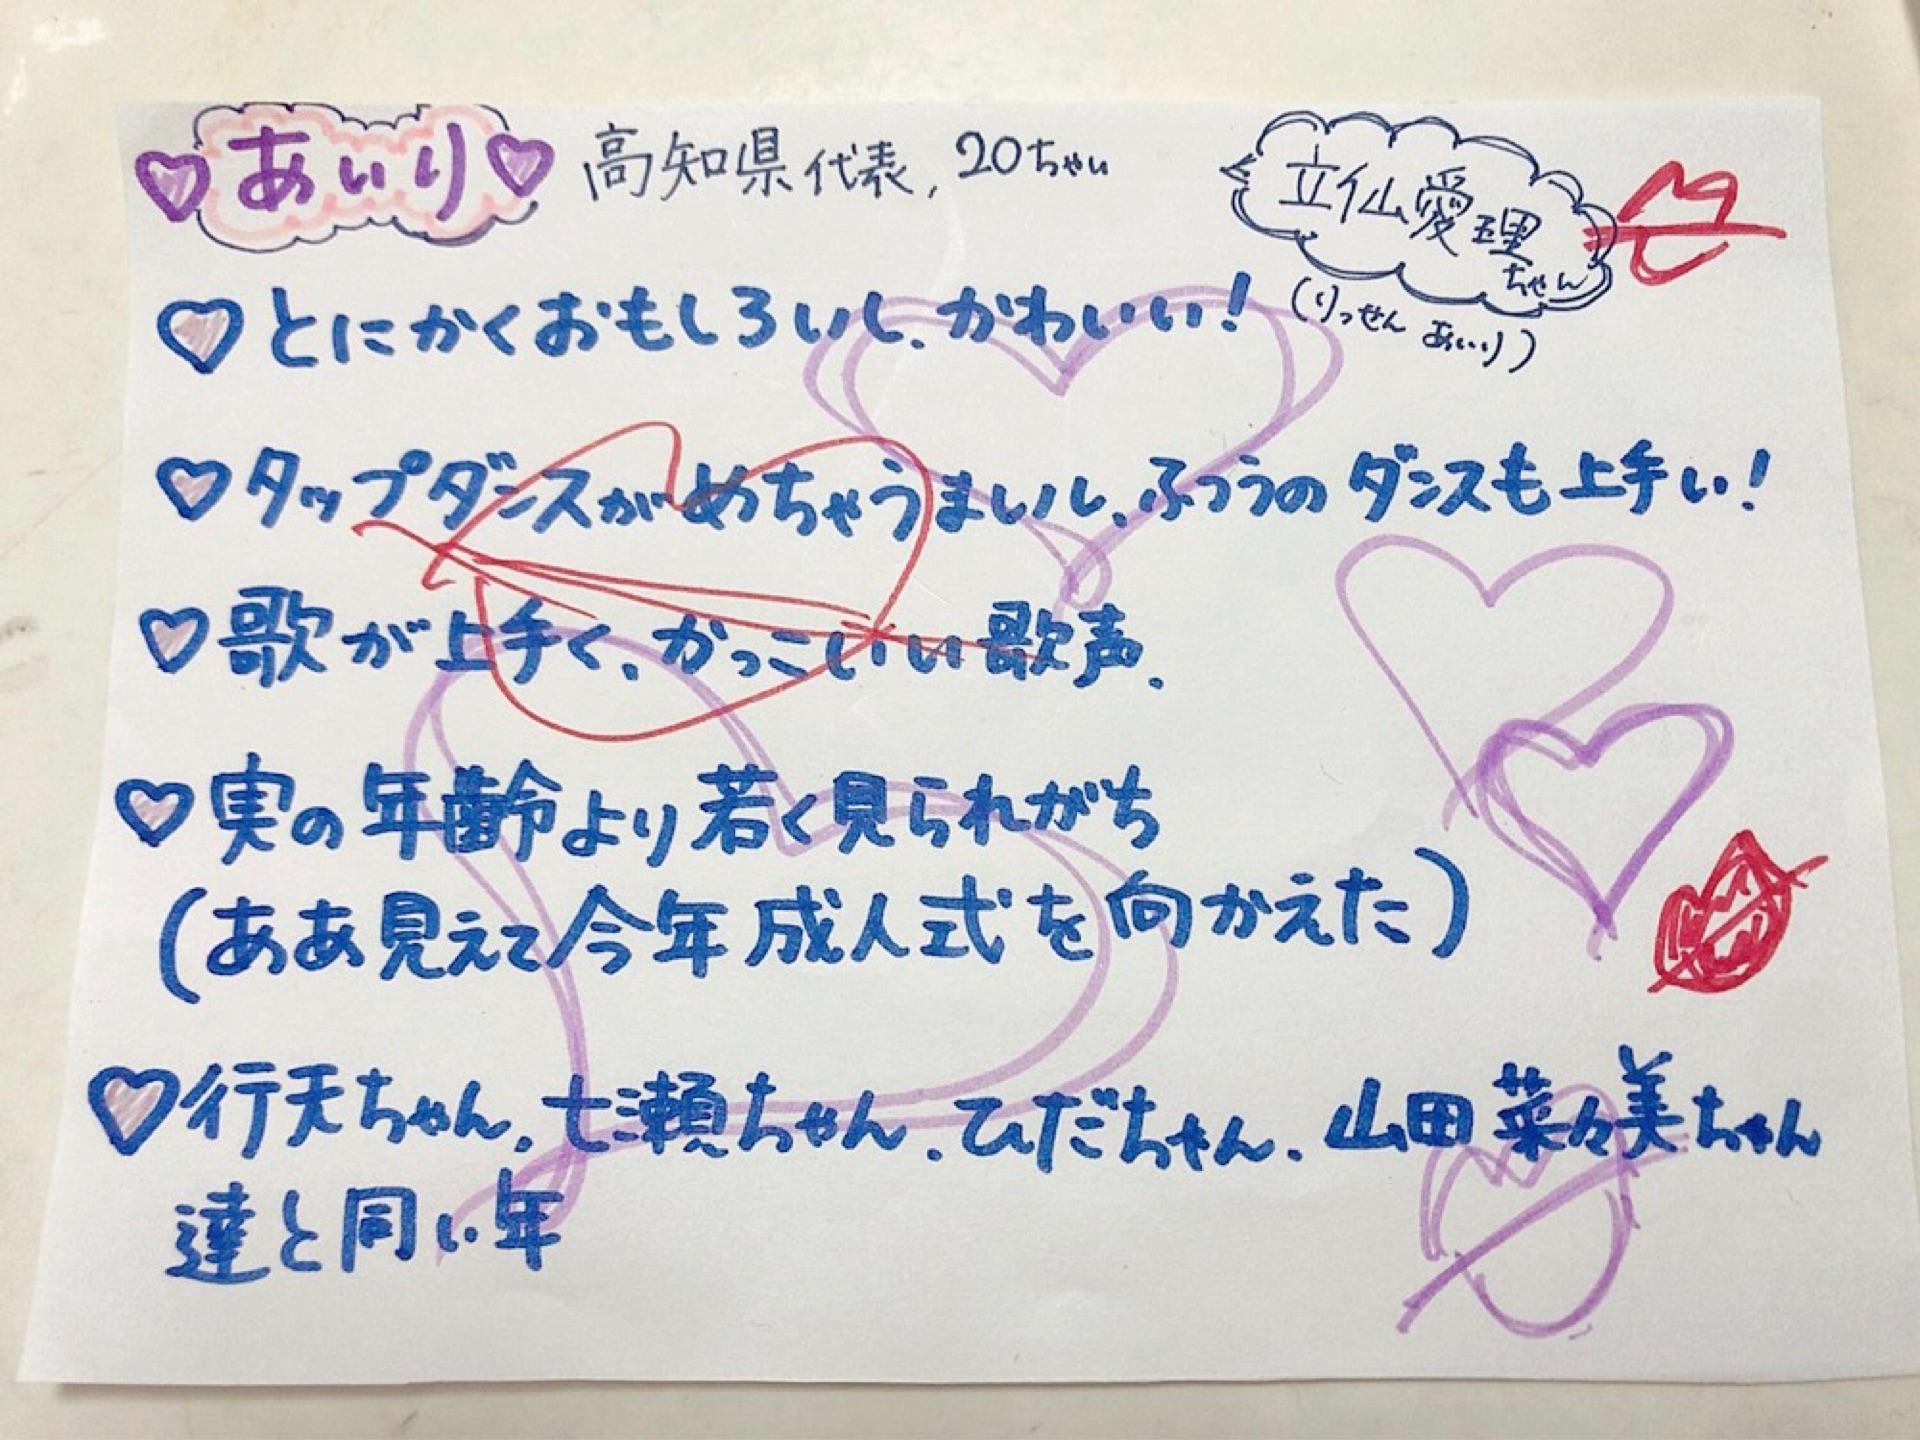 あいり 高知県代表, 20ちゃい
立仙愛理
ちゃん
(りっせん あいり)
とにかくおもしろいし、かわいい!
タップダンスがめちゃうまいし、ふつうのダンスも上手い!
歌が上手く、かっこいい歌声、
実の年齢より若く見られがち
(ああ見えて今年成人式を向かえた)
行天ちゃん、七瀬ちゃん、ひだちゃん、山田菜々美ちゃん
達と同い年